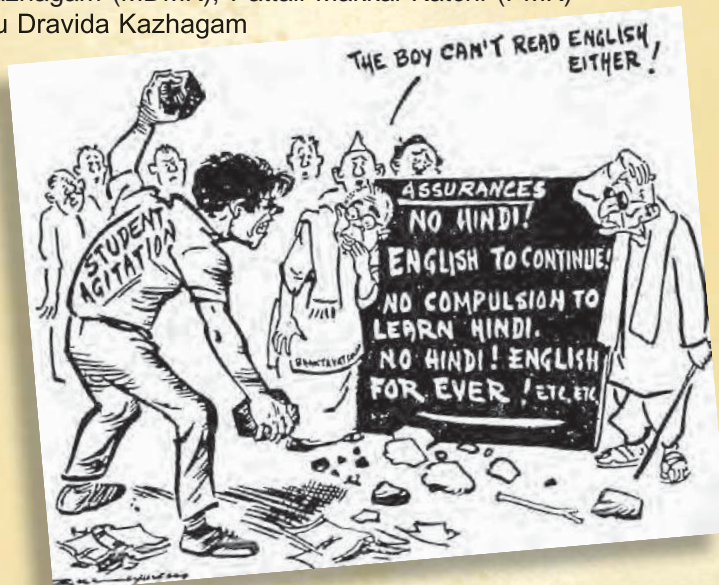 (MDMK),
u Dravida Kazhagam
THE BOY CAN'T READ ENGLISH
EITHER!
STUDENT
AGITATION
ASSURANCES
NO HINDI!
ENGLISH TO CONTINUE!
NO COMPULSION TO
LEARN HINDI.
NO HINDI! ENGLISH
FOR EVER! ETC, ETC